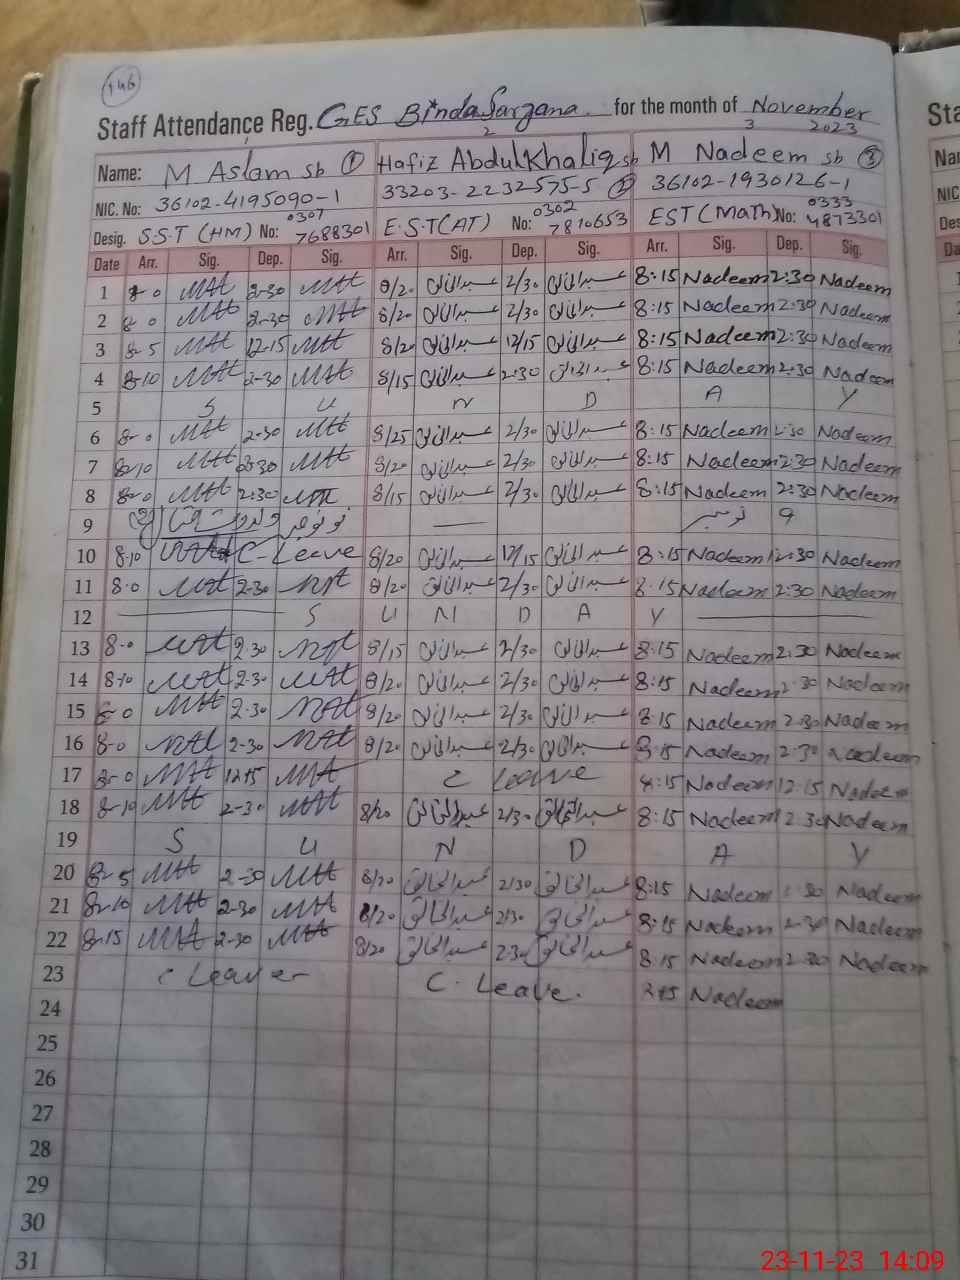 146
Staff Attendance Reg. GES Binda Sargana. for the month of November
1 2 3 2023
Name: M Aslam sb ① Hafiz Abdul Khaliq sb M Nadeem sb ③
NIC. No: 36102-4195090-1 33203-2232575-5 ② 36102-1930126-1
Desig. S.S.T (HM) No: 0307 7688301 E.S.T(AT) No: 0302 7810653 EST (Math) No: 0333 4873301
Date Arr. Sig. Dep. Sig. Arr. Sig. Dep. Sig. Arr. Sig. Dep. Sig.
1 8-0 2-30 8/20 عبدالخالق 2/30 عبدالخالق 8:15 Nadeem 2:30 Nadeem
2 8-0 2-30 8/20 عبدالخالق 2/30 عبدالخالق 8:15 Nadeem 2:30 Nadeem
3 8-5 12-15 8/20 عبدالخالق 12/15 عبدالخالق 8:15 Nadeem 2:30 Nadeem
4 8-10 2-30 8/15 عبدالخالق 2:30 عبدالخالق 8:15 Nadeem 2:30 Nadeem
5 S U N D A Y
6 8-0 2-30 8/25 عبدالخالق 2/30 عبدالخالق 8:15 Nadeem 2:30 Nadeem
7 8-10 2-30 8/20 عبدالخالق 2/30 عبدالخالق 8:15 Nadeem 2:30 Nadeem
8 8-0 2:30 8/15 عبدالخالق 2/30 عبدالخالق 8:15 Nadeem 2:30 Nadeem
9 نومبر 9
10 8-10 C-Leave 8/20 عبدالخالق 12/15 عبدالخالق 8:15 Nadeem 12:30 Nadeem
11 8-0 2-30 8/20 عبدالخالق 2/30 عبدالخالق 8:15 Nadeem 2:30 Nadeem
12 S U N D A Y
13 8-0 2-30 8/15 عبدالخالق 2/30 عبدالخالق 8:15 Nadeem 2:30 Nadeem
14 8-10 2-30 8/20 عبدالخالق 2/30 عبدالخالق 8:15 Nadeem 2:30 Nadeem
15 8-0 2-30 8/20 عبدالخالق 2/30 عبدالخالق 8:15 Nadeem 2:30 Nadeem
16 8-0 2-30 8/20 عبدالخالق 2/30 عبدالخالق 8:15 Nadeem 2:30 Nadeem
17 8-0 12-15 C Leave 8:15 Nadeem 12:15 Nadeem
18 8-10 2-30 8/20 عبدالخالق 2/30 عبدالخالق 8:15 Nadeem 2:30 Nadeem
19 S U N D A Y
20 8-5 2-30 8/20 عبدالخالق 2/30 عبدالخالق 8:15 Nadeem 2:30 Nadeem
21 8-10 2-30 8/20 عبدالخالق 2/30 عبدالخالق 8:15 Nadeem 2:30 Nadeem
22 8-15 2-30 8/20 عبدالخالق 2:30 عبدالخالق 8:15 Nadeem 2:30 Nadeem
23 C Leave C. Leave. Nadeem
24
25
26
27
28
29
30
31
23-11-23 14:09